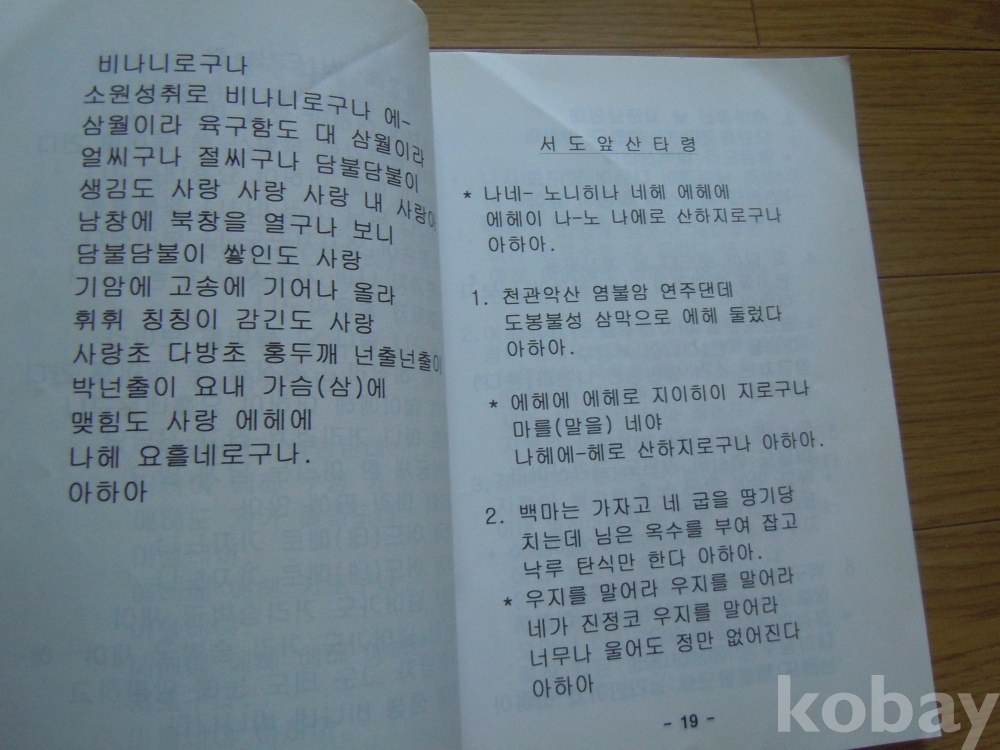 비나니로구나
소원성취로 비나니로구나 에-
삼월이라 육구함도 대 삼월이라
얼씨구나 절씨구나 담불담불이
생김도 사랑 사랑 사랑 내 사랑아
남창에 북창을 열구나 보니
담불담불이 쌓인도 사랑
기암에 고송에 기어나 올라
휘휘 칭칭이 감긴도 사랑
사랑초 다방초 홍두깨 넌출넌출이
박넌출이 요내 가슴(삼)에
맺힘도 사랑 에헤에
나헤 요흘네로구나.
아하아
서도앞산타령
* 나네- 노니히나 네헤 에헤에
에헤이 나-노 나에로 산하지로구나
아하아.
1. 천관악산 염불암 연주댄데
도봉불성 삼막으로 에헤 둘렀다
아하아.
* 에헤에 에헤로 지이히이 지로구나
마를(말을) 네야
나헤에-헤로 산하지로구나 아하아.
2. 백마는 가자고 네 굽을 땅기당
치는데 님은 옥수를 부여 잡고
낙루 탄식만 한다 아하아.
* 우지를 말어라 우지를 말어라
네가 진정코 우지를 말어라
너무나 울어도 정만 없어진다
아하아
- 19 -
kobay